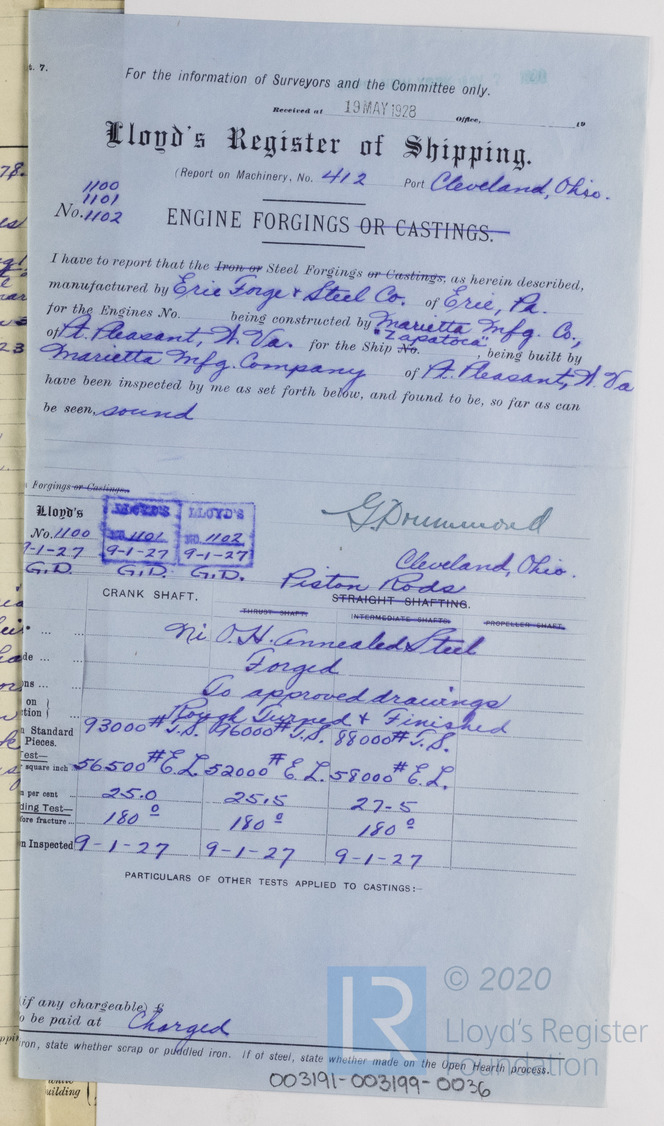 t. 7.
For the information of Surveyors and the Committee only.
Received at 19 MAY 1928 Office, 19
Lloyd's Register of Shipping.
(Report on Machinery, No. 412 Port Cleveland, Ohio.
1100
1101
No. 1102 ENGINE FORGINGS OR CASTINGS.
I have to report that the Iron or Steel Forgings or Castings, as herein described,
manufactured by Erie Forge & Steel Co. of Erie, Pa.
for the Engines No. being constructed by Marietta Mfg. Co.,
of Pt. Pleasant, W. Va. for the Ship No. "Zapatoca", being built by
Marietta Mfg. Company of Pt. Pleasant, W. Va
have been inspected by me as set forth below, and found to be, so far as can
be seen, sound
Forgings or Castings.
Lloyd's LLOYD'S LLOYD'S
No. 1100 NO. 1101 NO. 1102
9-1-27 9-1-27 9-1-27
G.D. G.D. G.D.
G. Drummond
Cleveland, Ohio.
Piston Rods
CRANK SHAFT. STRAIGHT SHAFTING.
THRUST SHAFT. INTERMEDIATE SHAFTS. PROPELLER SHAFT.
Ni O.H. Annealed Steel
de ... Forged
ons ... To approved drawings
on
tion Rough Turned & Finished
n Standard
Pieces. 93000# T.S. 96000# T.S. 88000# T.S.
Test—
square inch 56500# E.L. 52000# E.L. 58000# E.L.
n per cent 25.0 25.5 27.5
ding Test—
fore fracture 180° 180° 180°
n Inspected 9-1-27 9-1-27 9-1-27
PARTICULARS OF OTHER TESTS APPLIED TO CASTINGS:—
(if any chargeable) £
o be paid at Charged
iron, state whether scrap or puddled iron. If of steel, state whether made on the Open Hearth process.
003191-003199-0036
LR
© 2020
Lloyd's Register
Foundation
uilding